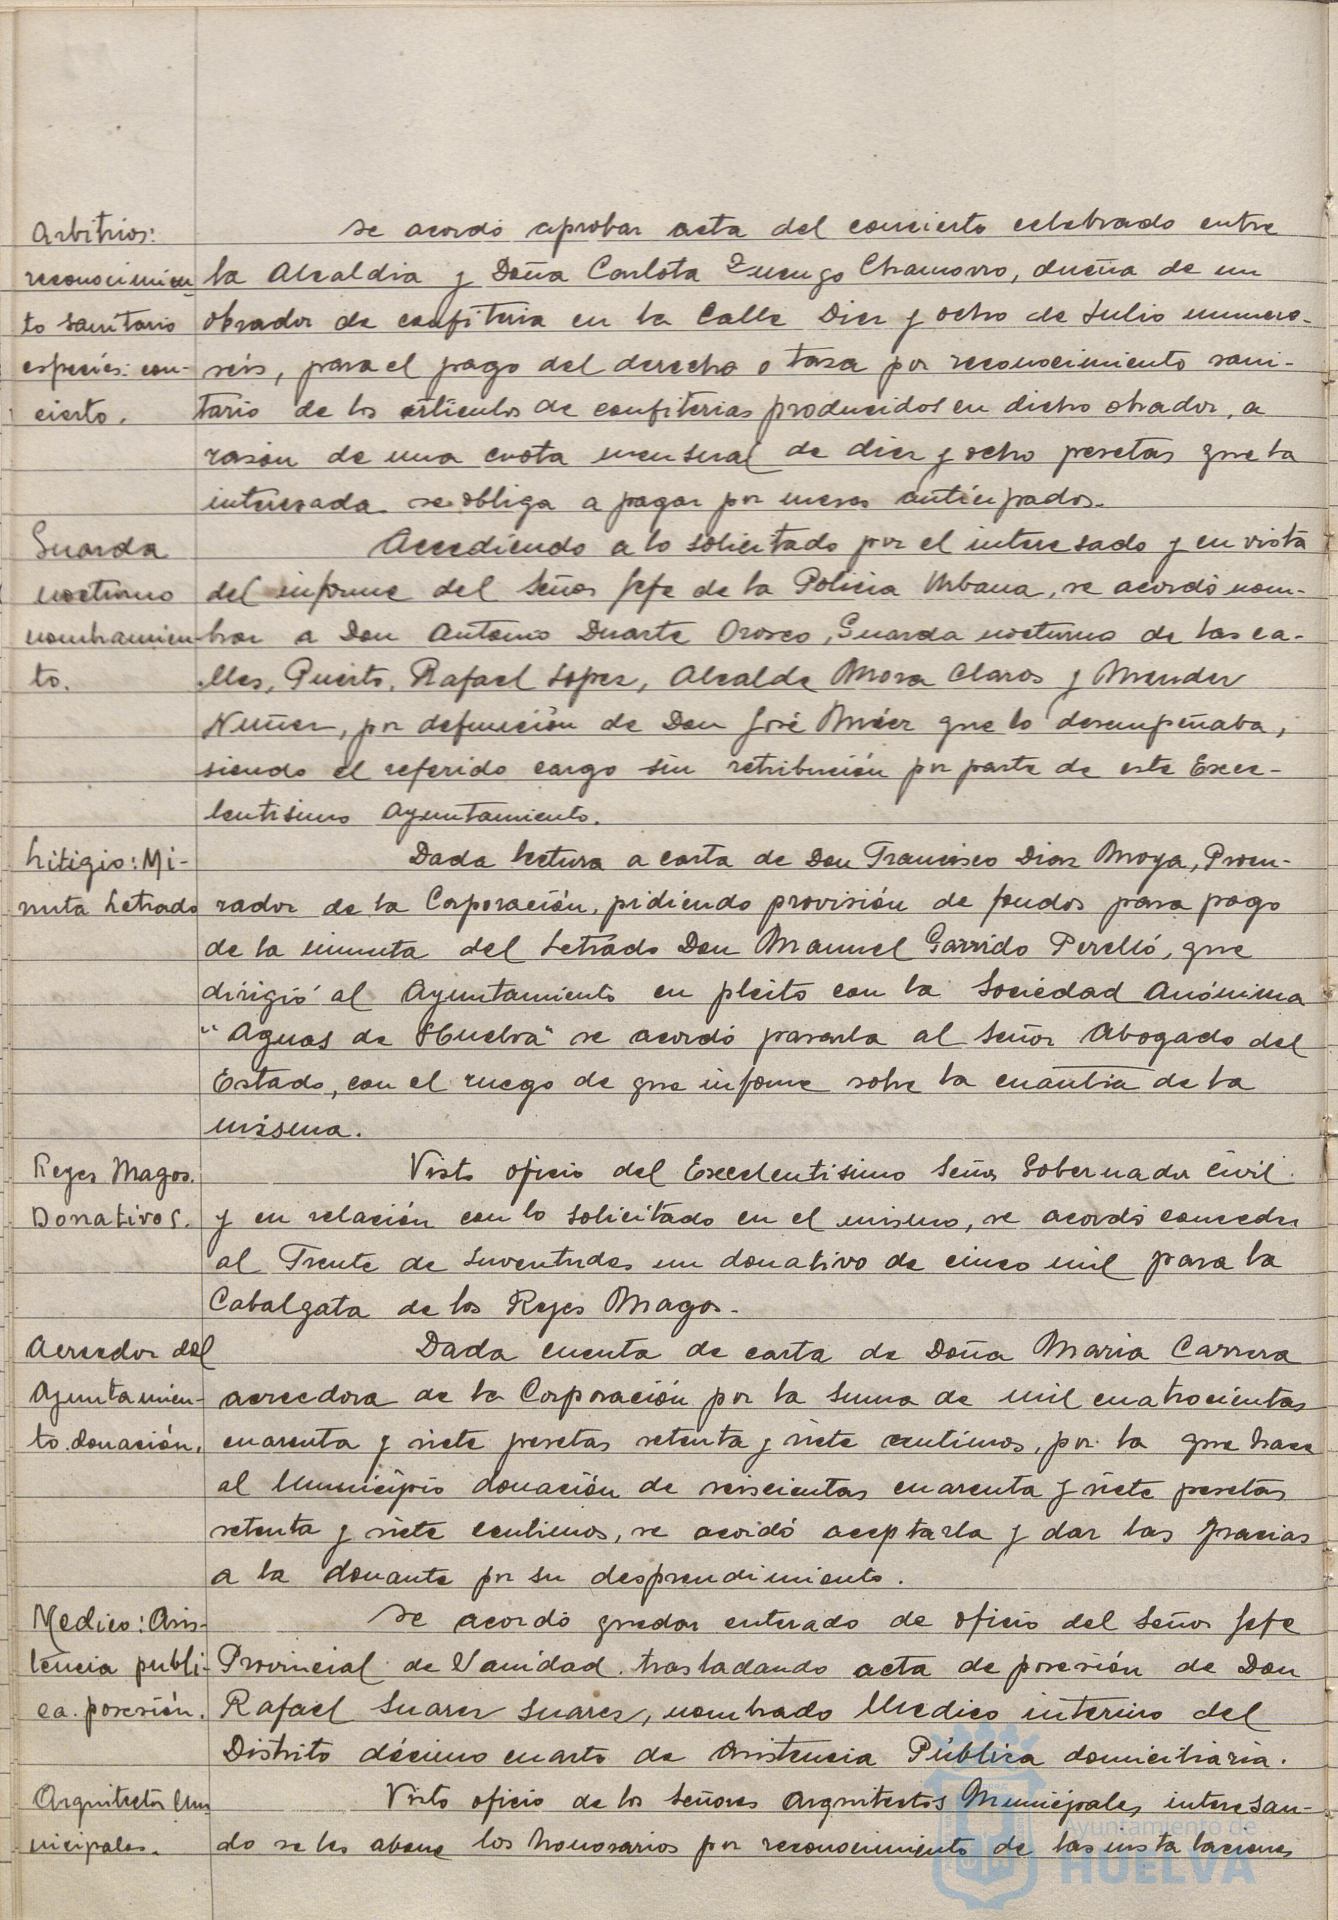 Arbitrios:
reconocimien
to sanitario
especies: con-
cierto.
Se acordó aprobar acta del concierto celebrado entre
la Alcaldia y Doña Carlota Luengo Chamorro, dueña de un
obrador de confiteria en la Calle Diez y ocho de Julio numero
seis, para el pago del derecho o tasa por reconocimiento sani-
tario de los articulos de confiterias producidos en dicho obrador, a
razón de una cuota mensual de diez y ocho pesetas que la
interesada se obliga a pagar por meses anticipados.
Guarda
nocturno
nombramien-
to.
Accediendo a lo solicitado por el interesado y en vista
del informe del Señor Jefe de la Policia Urbana, se acordó nom-
brar a Don Antonio Duarte Orosco, Guarda nocturno de las ca-
lles, Puerto, Rafael Lopez, Alcalde Mora Claros y Mendez
Nuñez, por defunción de Don José que lo desempeñaba,
siendo el referido cargo sin retribución por parte de este Exce-
lentisimo Ayuntamiento.
Litigio: Mi-
nuta Letrado
Dada lectura a carta de Don Francisco Diaz Moya, Procu-
rador de la Corporación, pidiendo provisión de fondos para pago
de la minuta del Letrado Don Manuel Garrido Perelló, que
dirigió al Ayuntamiento en pleito con la Sociedad Anónima
"Aguas de Huelva" se acordó pasarla al Señor Abogado del
Estado, con el ruego de que informe sobre la cuantia de la
misma.
Reyes Magos.
Donativos.
Visto oficio del Excelentisimo Señor Gobernador Civil
y en relación con lo solicitado en el mismo, se acordó conceder
al Frente de Juventudes un donativo de cinco mil para la
Cabalgata de los Reyes Magos.
Acreedor del
Ayuntamien-
to. donación.
Dada cuenta de carta de Doña Maria Carrera
acreedora de la Corporación por la suma de mil cuatrocientas
cuarenta y siete pesetas setenta y siete centimos, por la que hace
al Municipio donación de seiscientas cuarenta y siete pesetas
setenta y siete centimos, se acordó aceptarla y dar las gracias
a la donante por su desprendimiento.
Medico: Asis-
tencia publi-
ca. posesión.
Se acordó quedar enterado de oficio del Señor Jefe
Provincial de Sanidad trasladando acta de posesión de Don
Rafael Suarez Suarez, nombrado Medico interino del
Distrito décimo cuarto de Asistencia Pública domiciliaria.
Arquitectos Mu
nicipales.
Visto oficio de los Señores Arquitectos Municipales interesan-
do se les abone los honorarios por reconocimiento de las instalaciones
Ayuntamiento de
HUELVA